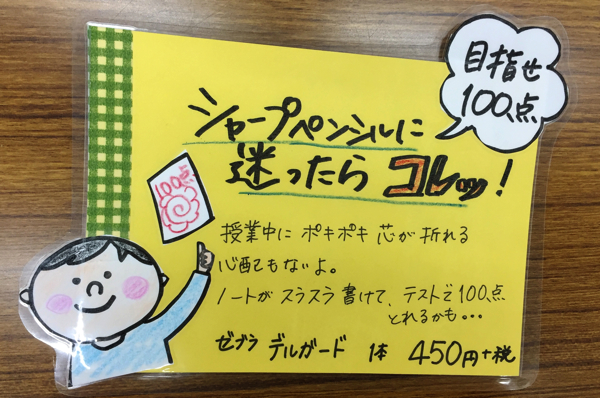 目指せ
100点
シャープペンシルに
迷ったら コレッ!
100点
授業中に ポキポキ 芯が 折れる
心配もないよ。
ノートが スラスラ 書けて、テストで100点
とれるかも…
ゼブラ デルガード 1本 450円+税